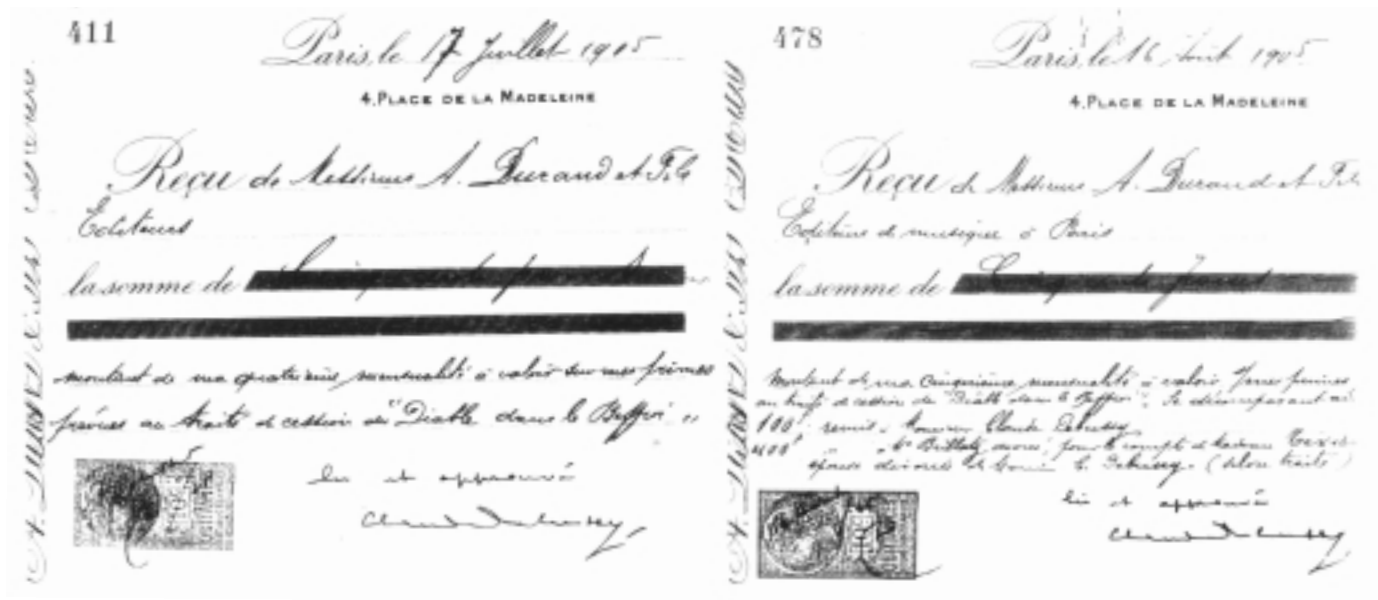 411
Paris, le 17 Juillet 1905
4. PLACE DE LA MADELEINE
Reçu de Messieurs A. Durand et Fils
Editeurs
la somme de
montant de ma quatrième mensualité à valoir sur mes primes
prévues au traité de cession du "Diable dans le Beffroi"
lu et approuvé
Claude Debussy
478
Paris, le 16 Août 1905
4. PLACE DE LA MADELEINE
Reçu de Messieurs A. Durand et Fils
Editeurs de musique à Paris
la somme de
montant de ma cinquième mensualité à valoir primes
au traité de cession du "Diable dans le Beffroi". Se décomposant
100f remis à Monsieur Claude Debussy
400f pour le compte de Madame
épouse divorcée de C. Debussy. (selon traité)
lu et approuvé
Claude Debussy